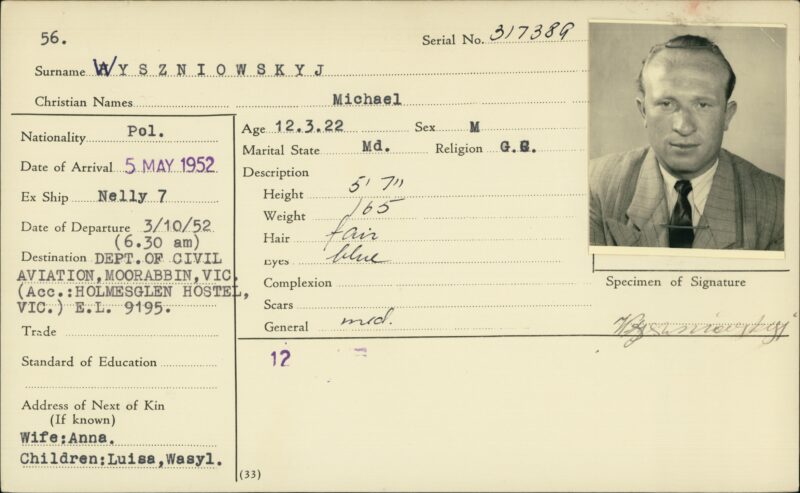 56.
Serial No. 317389
Surname WYSZNIOWSKYJ
Christian Names Michael
Nationality Pol.
Date of Arrival 5 MAY 1952
Ex Ship Nelly 7
Date of Departure 3/10/52
(6.30 am)
Destination DEPT.OF CIVIL
AVIATION,MOORABBIN,VIC.
(Acc.:HOLMESGLEN HOSTEL,
VIC.) E.L. 9195.
Trade
Standard of Education
Address of Next of Kin
(If known)
Wife:Anna.
Children:Luisa,Wasyl.
Age 12.3.22 Sex M
Marital State Md. Religion G.C.
Description
Height 5' 7"
Weight 165
Hair fair
Eyes blue
Complexion
Scars
General med.
12
(33)
Specimen of Signature